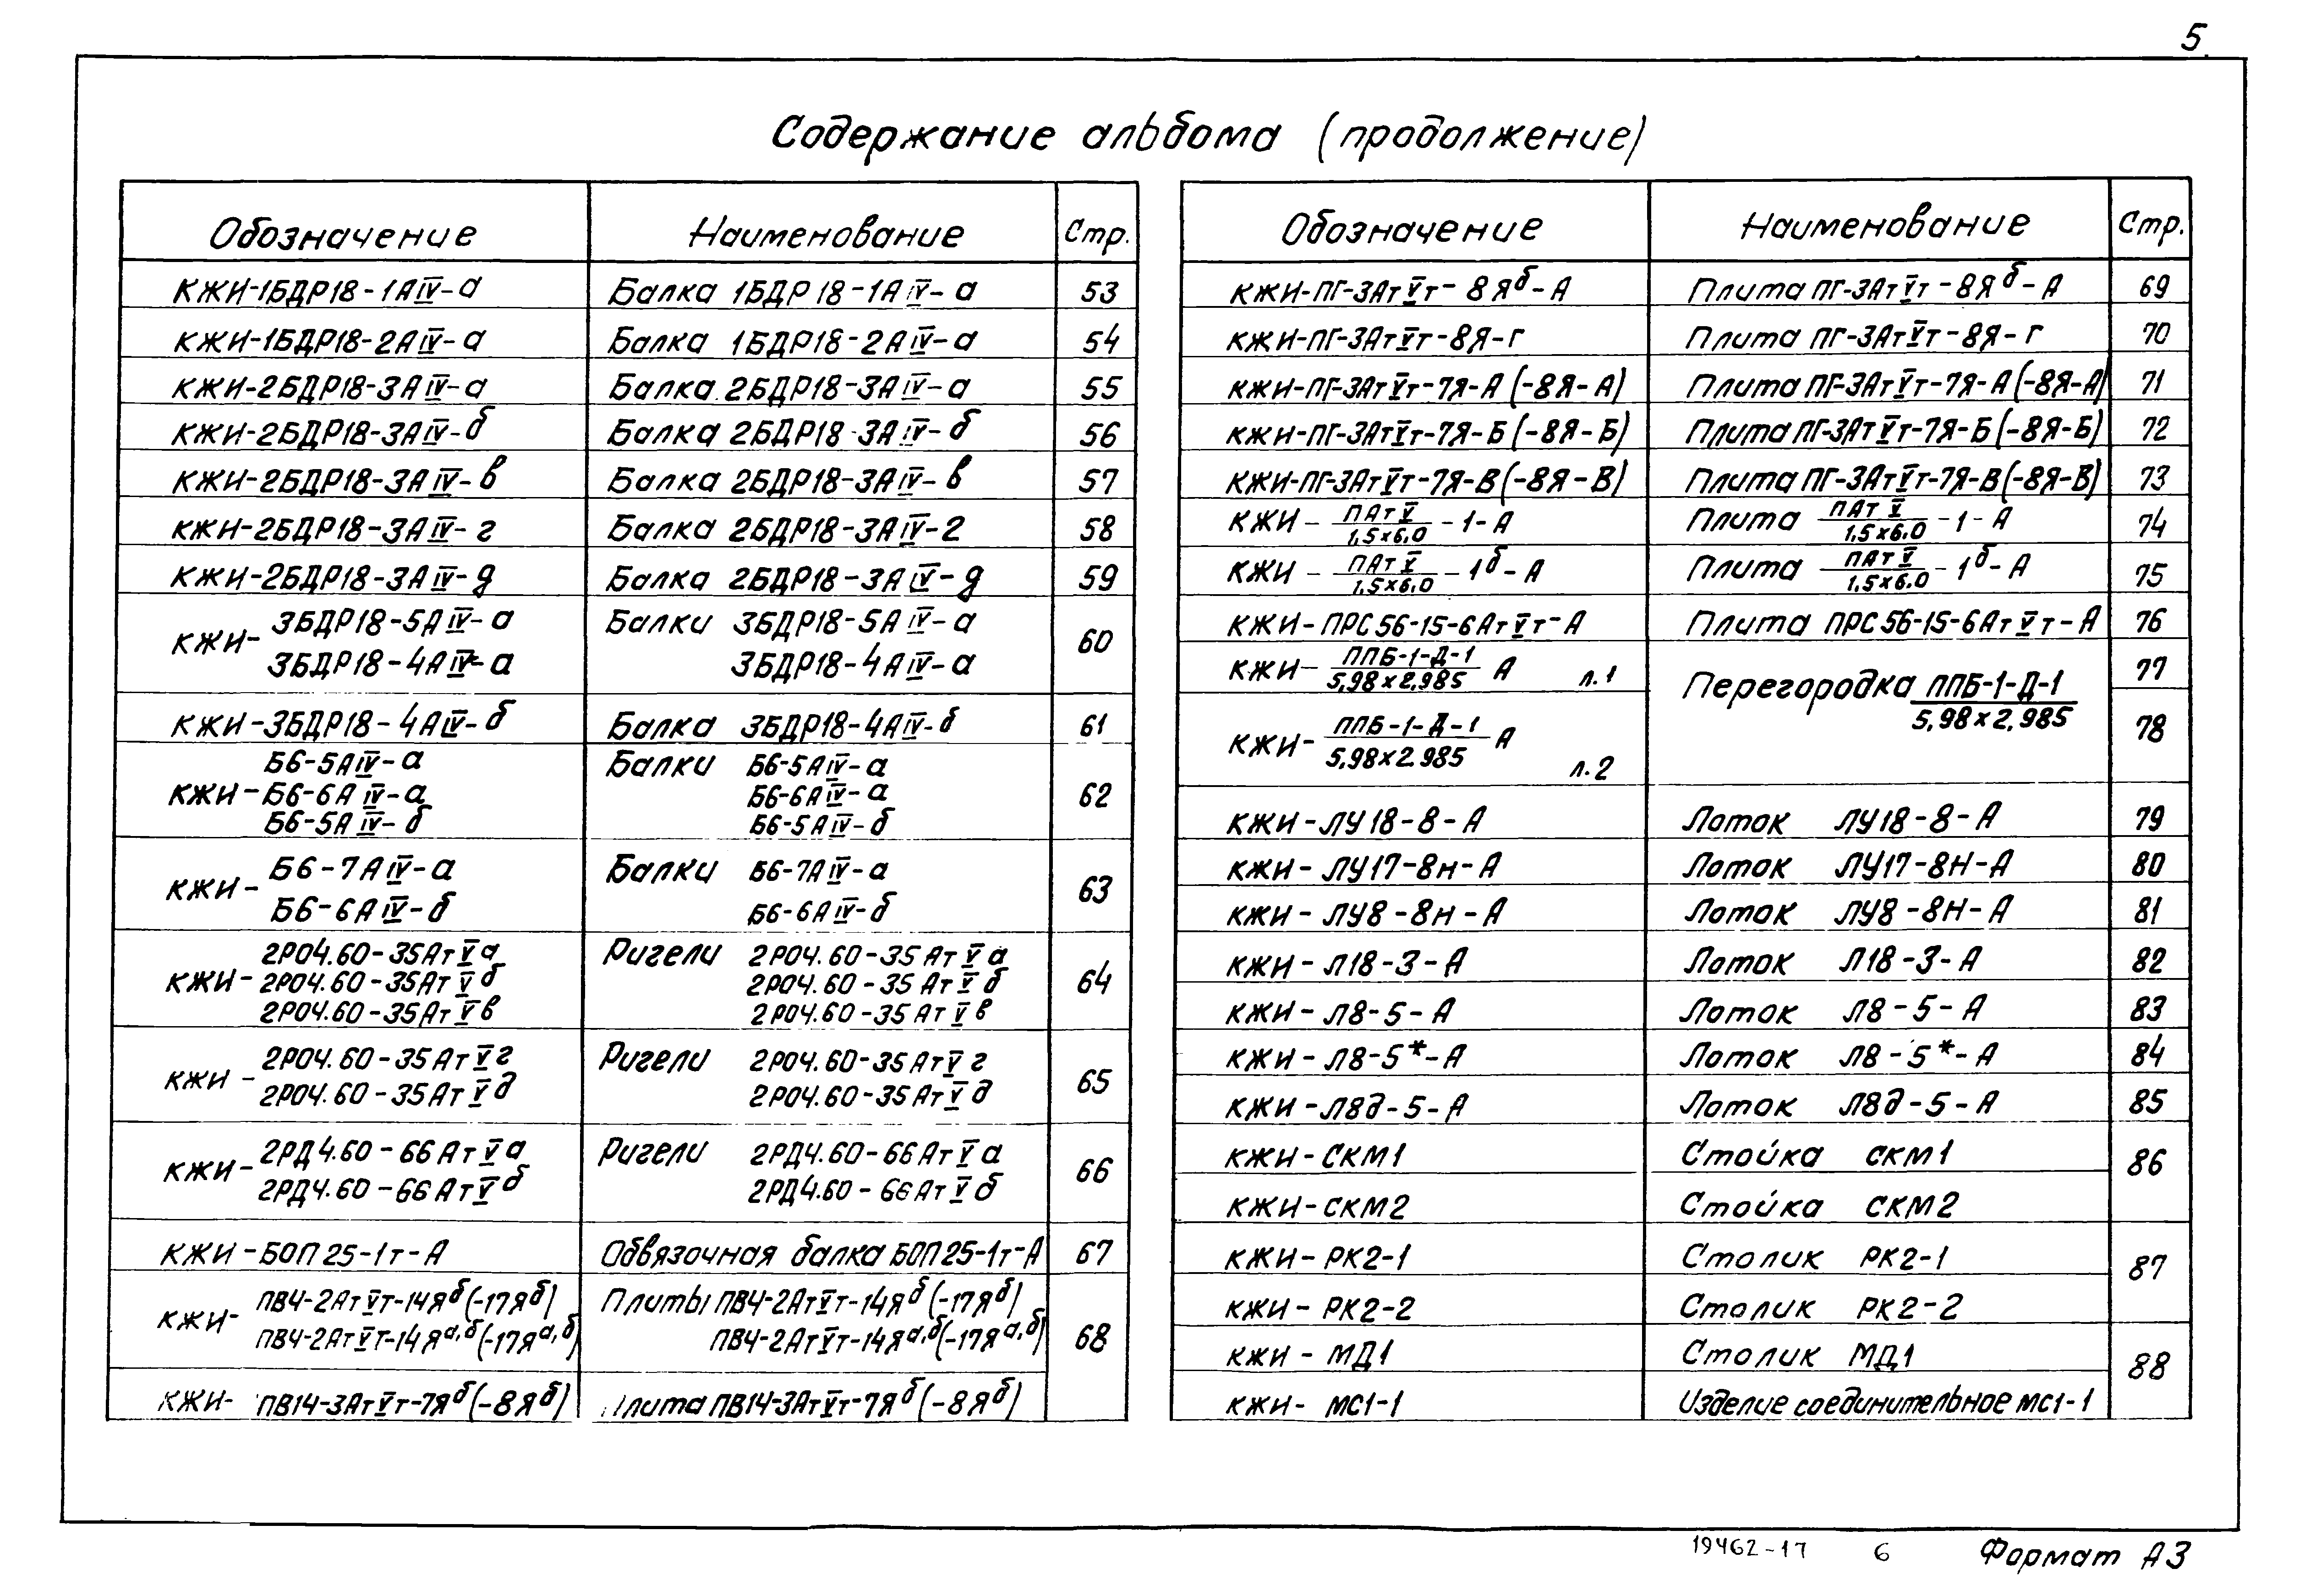 5
Содержание альбома (продолжение)
Обозначение Наименование Стр.
КЖИ-1БДР18-1АIV-а Балка 1БДР18-1АIV-а 53
КЖИ-1БДР18-2АIV-а Балка 1БДР18-2АIV-а 54
КЖИ-2БДР18-3АIV-а Балка 2БДР18-3АIV-а 55
КЖИ-2БДР18-3АIV-б Балка 2БДР18-3АIV-б 56
КЖИ-2БДР18-3АIV-в Балка 2БДР18-3АIV-в 57
КЖИ-2БДР18-3АIV-г Балка 2БДР18-3АIV-г 58
КЖИ-2БДР18-3АIV-д Балка 2БДР18-3АIV-д 59
3БДР18-5АIV-а Балки 3БДР18-5АIV-а
КЖИ- 60
3БДР18-4АIV-а 3БДР18-4АIV-а
КЖИ-3БДР18-4АIV-б Балка 3БДР18-4АIV-б 61
Б6-5АIV-а Балки Б6-5АIV-а
КЖИ-Б6-6АIV-а Б6-6АIV-а 62
Б6-5АIV-б Б6-5АIV-б
Б6-7АIV-а Балки Б6-7АIV-а
КЖИ- 63
Б6-6АIV-б Б6-6АIV-б
2РО4.60-35АтVа Ригели 2РО4.60-35АтVа
КЖИ-2РО4.60-35АтVб 2РО4.60-35АтVб 64
2РО4.60-35АтVв 2РО4.60-35АтVв
2РО4.60-35АтVг Ригели 2РО4.60-35АтVг
КЖИ- 65
2РО4.60-35АтVд 2РО4.60-35АтVд
2РД4.60-66АтVа Ригели 2РД4.60-66АтVа
КЖИ- 66
2РД4.60-66АтVб 2РД4.60-66АтVб
КЖИ-БОП25-1т-А Обвязочная балка БОП25-1т-А 67
ПВ4-2АтVт-14Яб(-17Яб) Плиты ПВ4-2АтVт-14Яб(-17Яб)
КЖИ- 68
ПВ4-2АтVт-14Яа,б(-17Яа,б) ПВ4-2АтVт-14Яа,б(-17Яа,б)
КЖИ- ПВ14-3АтVт-7Яб(-8Яб) Плита ПВ14-3АтVт-7Яб(-8Яб)
Обозначение Наименование Стр.
КЖИ-ПГ-3АтVт-8Яб-А Плита ПГ-3АтVт-8Яб-А 69
КЖИ-ПГ-3АтVт-8Я-г Плита ПГ-3АтVт-8Я-г 70
КЖИ-ПГ-3АтVт-7Я-А(-8Я-А) Плита ПГ-3АтVт-7Я-А(-8Я-А) 71
КЖИ-ПГ-3АтVт-7Я-Б(-8Я-Б) Плита ПГ-3АтVт-7Я-Б(-8Я-Б) 72
КЖИ-ПГ-3АтVт-7Я-В(-8Я-В) Плита ПГ-3АтVт-7Я-В(-8Я-В) 73
КЖИ- ПАтV/1,5х6,0 -1-А Плита ПАтV/1,5х6,0 -1-А 74
КЖИ- ПАтV/1,5х6,0 -1б-А Плита ПАтV/1,5х6,0 -1б-А 75
КЖИ-ПРС56-15-6АтVт-А Плита ПРС56-15-6АтVт-А 76
КЖИ- ППБ-1-Д-1/5,98х2,985 А л.1 77
Перегородка ППБ-1-Д-1/5,98х2,985
КЖИ- ППБ-1-Д-1/5,98х2.985 А л.2 78
КЖИ-ЛУ18-8-А Лоток ЛУ18-8-А 79
КЖИ-ЛУ17-8н-А Лоток ЛУ17-8Н-А 80
КЖИ-ЛУ8-8н-А Лоток ЛУ8-8Н-А 81
КЖИ-Л18-3-А Лоток Л18-3-А 82
КЖИ-Л8-5-А Лоток Л8-5-А 83
КЖИ-Л8-5*-А Лоток Л8-5*-А 84
КЖИ-Л8д-5-А Лоток Л8д-5-А 85
КЖИ-СКМ1 Стойка СКМ1 86
КЖИ-СКМ2 Стойка СКМ2
КЖИ-РК2-1 Столик РК2-1 87
КЖИ-РК2-2 Столик РК2-2
КЖИ-МД1 Столик МД1 88
КЖИ- МС1-1 Изделие соединительное МС1-1
19462-17 6 Формат А3